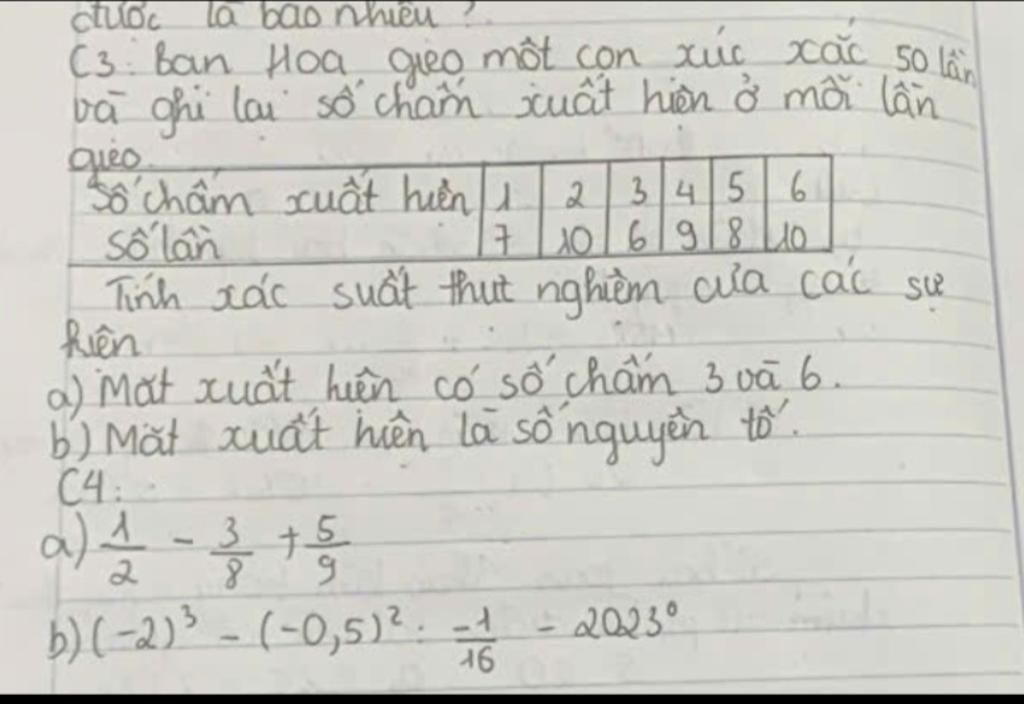 được là bao nhiêu?
C3: Bạn Hoa gieo một con xúc xắc 50 lần
và ghi lại số chấm xuất hiện ở mỗi lần
gieo.
Số chấm xuất hiện 1 2 3 4 5 6
Số lần 7 10 6 9 8 10
Tính xác suất thực nghiệm của các sự
kiện
a) Mặt xuất hiện có số chấm 3 và 6.
b) Mặt xuất hiện là số nguyên tố.
C4:
a) 1/2 - 3/8 + 5/9
b) (-2)³ - (-0,5)² : -1/16 - 2023⁰